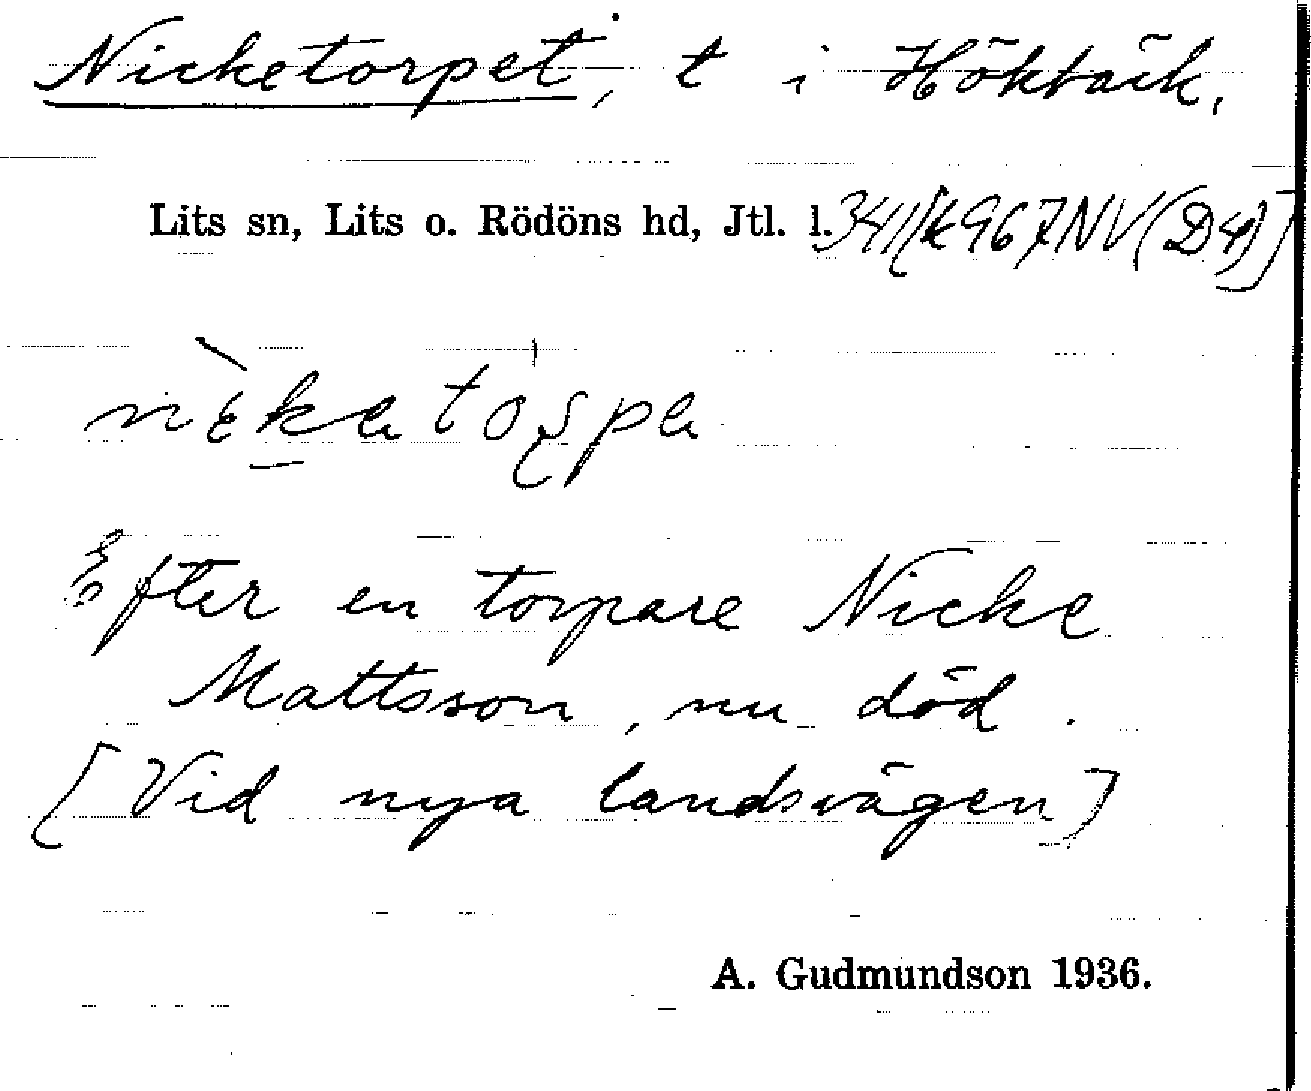 Nicketorpet, t i Hökbäck,
Lits sn, Lits o. Rödöns hd, Jtl. l. 341 [k 967 NV (D4)]
Efter en torpare Nicke
Mattsson, nu död.
[Vid nya landsvägen]
A. Gudmundson 1936.